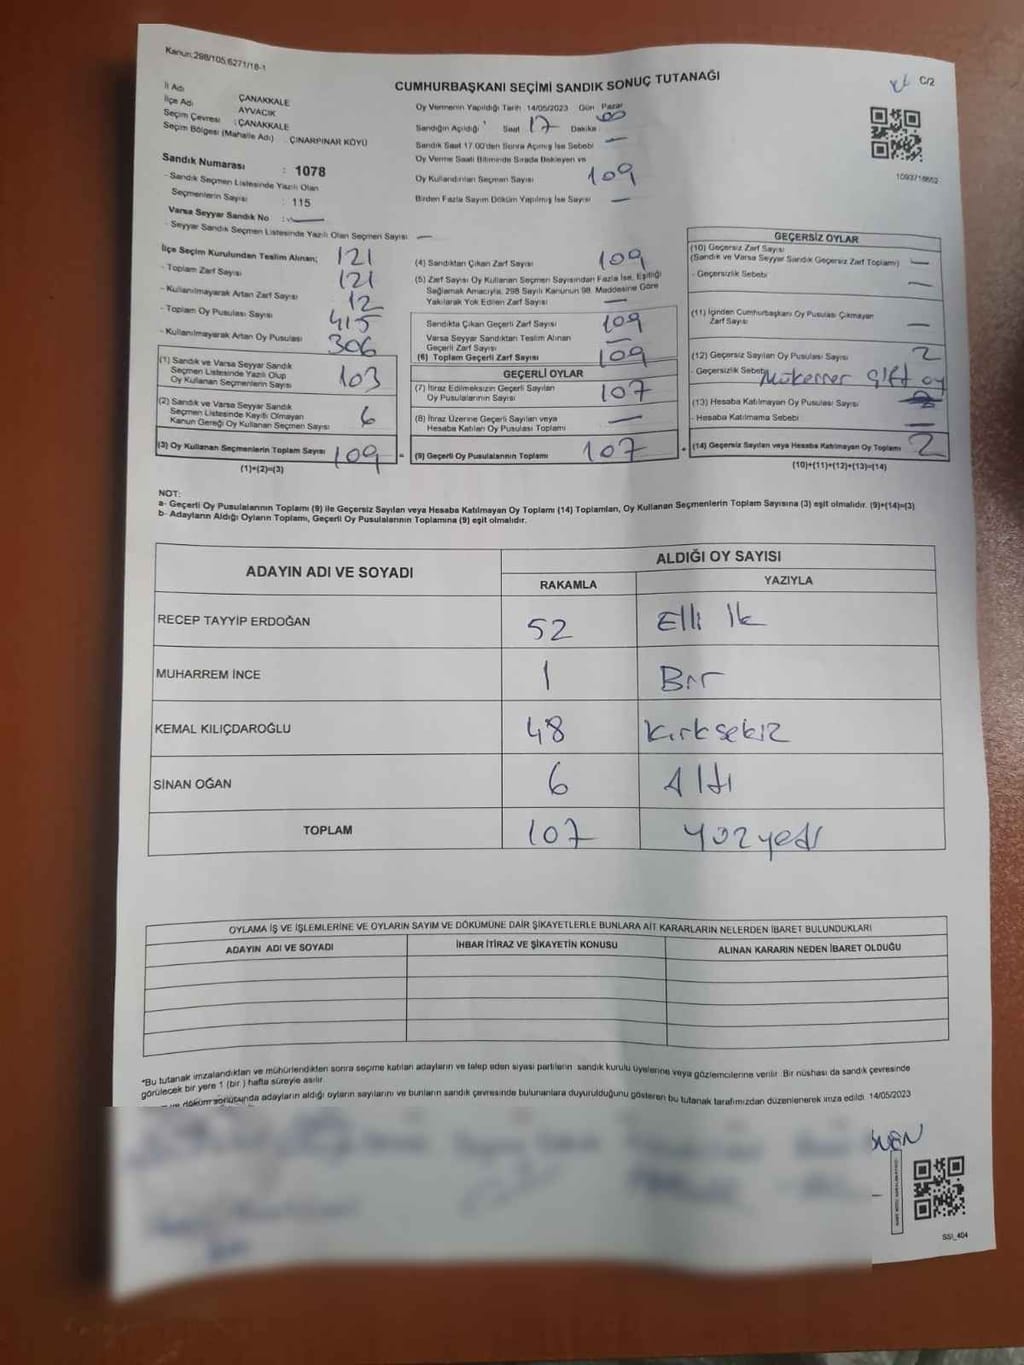 Kanun:298/105;6271/18-1
C/2
CUMHURBAŞKANI SEÇİMİ SANDIK SONUÇ TUTANAĞI
İl Adı ÇANAKKALE
İlçe Adı AYVACIK
Seçim Çevresi : ÇANAKKALE
Seçim Bölgesi (Mahalle Adı) : ÇINARPINAR KÖYÜ
Sandık Numarası : 1078
- Sandık Seçmen Listesinde Yazılı Olan
Seçmenlerin Sayısı : 115
Varsa Seyyar Sandık No : —
- Seyyar Sandık Seçmen Listesinde Yazılı Olan Seçmen Sayısı : —
Oy Vermenin Yapıldığı Tarih 14/05/2023 Gün Pazar
Sandığın Açıldığı Saat 17 Dakika 00
Sandık Saat 17.00'den Sonra Açılmış İse Sebebi —
Oy Verme Saati Bitiminde Sırada Bekleyen ve
Oy Kullandırılan Seçmen Sayısı 109
Birden Fazla Sayım Döküm Yapılmış İse Sayısı —
1093716662
İlçe Seçim Kurulundan Teslim Alınan; 121
- Toplam Zarf Sayısı 121
- Kullanılmayarak Artan Zarf Sayısı 12
- Toplam Oy Pusulası Sayısı 415
- Kullanılmayarak Artan Oy Pusulası 306
(1) Sandık ve Varsa Seyyar Sandık
Seçmen Listesinde Yazılı Olup
Oy Kullanan Seçmenlerin Sayısı 103
(2) Sandık ve Varsa Seyyar Sandık
Seçmen Listesinde Kayıtlı Olmayan
Kanun Gereği Oy Kullanan Seçmen Sayısı 6
(3) Oy Kullanan Seçmenlerin Toplam Sayısı 109 =
(1)+(2)=(3)
(4) Sandıktan Çıkan Zarf Sayısı 109
(5) Zarf Sayısı Oy Kullanan Seçmen Sayısından Fazla İse, Eşitliği
Sağlamak Amacıyla, 298 Sayılı Kanunun 98. Maddesine Göre
Yakılarak Yok Edilen Zarf Sayısı —
Sandıkta Çıkan Geçerli Zarf Sayısı 109
Varsa Seyyar Sandıktan Teslim Alınan
Geçerli Zarf Sayısı —
(6) Toplam Geçerli Zarf Sayısı 109
GEÇERLİ OYLAR
(7) İtiraz Edilmeksizin Geçerli Sayılan
Oy Pusulalarının Sayısı 107
(8) İtiraz Üzerine Geçerli Sayılan veya
Hesaba Katılan Oy Pusulası Toplamı —
(9) Geçerli Oy Pusulalarının Toplamı 107 +
GEÇERSİZ OYLAR
(10) Geçersiz Zarf Sayısı
(Sandık ve Varsa Seyyar Sandık Geçersiz Zarf Toplamı) —
- Geçersizlik Sebebi —
(11) İçinden Cumhurbaşkanı Oy Pusulası Çıkmayan
Zarf Sayısı —
(12) Geçersiz Sayılan Oy Pusulası Sayısı 2
- Geçersizlik Sebebi Mükerrer Çift oy
(13) Hesaba Katılmayan Oy Pusulası Sayısı
- Hesaba Katılmama Sebebi —
(14) Geçersiz Sayılan veya Hesaba Katılmayan Oy Toplamı 2
(10)+(11)+(12)+(13)=(14)
NOT:
a- Geçerli Oy Pusulalarının Toplamı (9) ile Geçersiz Sayılan veya Hesaba Katılmayan Oy Toplamı (14) Toplamları, Oy Kullanan Seçmenlerin Toplam Sayısına (3) eşit olmalıdır. (9)+(14)=(3)
b- Adayların Aldığı Oyların Toplamı, Geçerli Oy Pusulalarının Toplamına (9) eşit olmalıdır.
ADAYIN ADI VE SOYADI ALDIĞI OY SAYISI
RAKAMLA YAZIYLA
RECEP TAYYİP ERDOĞAN 52 Elli Ik
MUHARREM İNCE 1 Bir
KEMAL KILIÇDAROĞLU 48 Kırksekiz
SİNAN OĞAN 6 Altı
TOPLAM 107 Yüzyedi
OYLAMA İŞ VE İŞLEMLERİNE VE OYLARIN SAYIM VE DÖKÜMÜNE DAİR ŞİKAYETLERLE BUNLARA AİT KARARLARIN NELERDEN İBARET BULUNDUKLARI
ADAYIN ADI VE SOYADI İHBAR İTİRAZ VE ŞİKAYETİN KONUSU ALINAN KARARIN NEDEN İBARET OLDUĞU
"Bu tutanak imzalandıktan ve mühürlendikten sonra seçime katılan adayların ve talep eden siyasi partilerin sandık kurulu üyelerine veya gözlemcilerine verilir. Bir nüshası da sandık çevresinde
görülecek bir yere 1 (bir) hafta süreyle asılır.
döküm sonucunda adayların aldığı oyların sayılarını ve bunların sandık çevresinde bulunanlara duyurulduğunu gösteren bu tutanak tarafımızdan düzenlenerek imza edildi. 14/05/2023
SSI_404